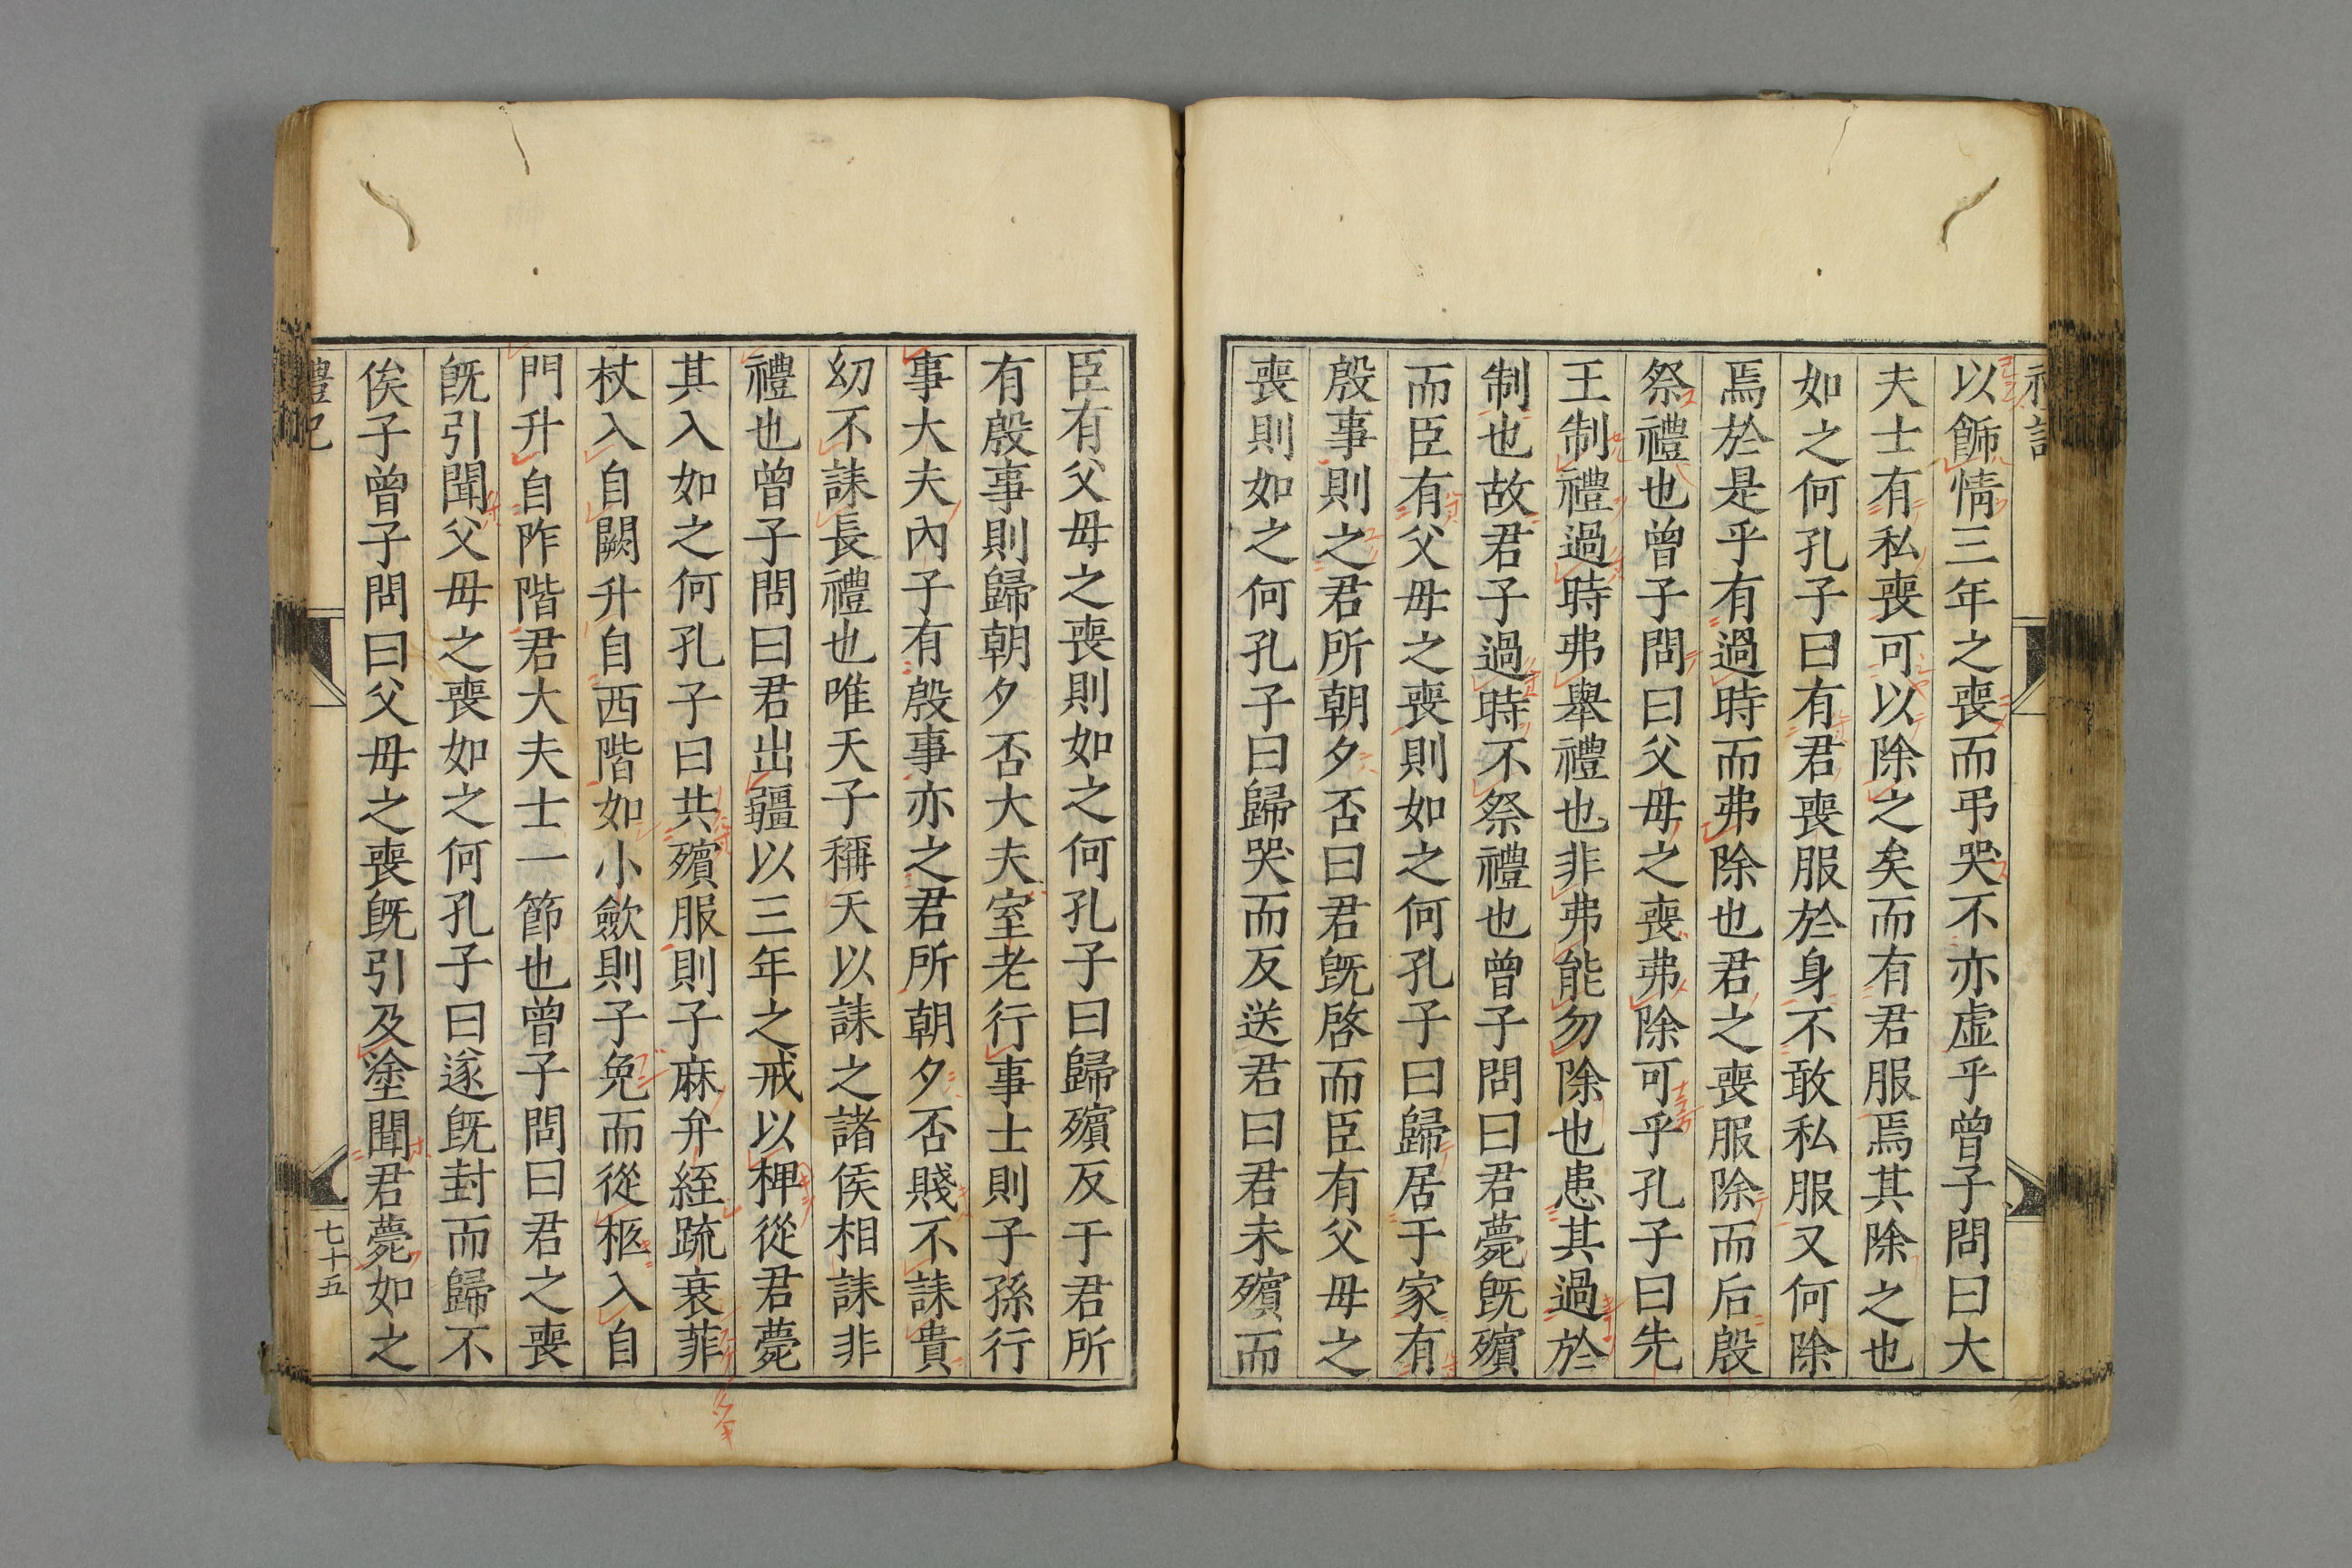 禮記
以飾情三年之喪而弔哭不亦虛乎曾子問曰大
夫士有私喪可以除之矣而有君服焉其除之也
如之何孔子曰有君喪服於身不敢私服又何除
焉於是乎有過時而弗除也君之喪服除而后殷
祭禮也曾子問曰父母之喪弗除可乎孔子曰先
王制禮過時弗舉禮也非弗能勿除也患其過於
制也故君子過時不祭禮也曾子問曰君薨旣殯
而臣有父母之喪則如之何孔子曰歸居于家有
殷事則之君所朝夕否曰君旣啓而臣有父母之
喪則如之何孔子曰歸哭而反送君曰君未殯而
臣有父母之喪則如之何孔子曰歸殯反于君所
有殷事則歸朝夕否大夫室老行事士則子孫行
事大夫內子有殷事亦之君所朝夕否賤不誄貴
幼不誄長禮也唯天子稱天以誄之諸侯相誄非
禮也曾子問曰君出疆以三年之戒以椑從君薨
其入如之何孔子曰共殯服則子麻弁絰疏衰菲
杖入自闕升自西階如小斂則子免而從柩入自
門升自阼階君大夫士一節也曾子問曰君之喪
旣引聞父母之喪如之何孔子曰遂旣封而歸不
俟子曾子問曰父母之喪旣引及塗聞君薨如之
禮記
七十五